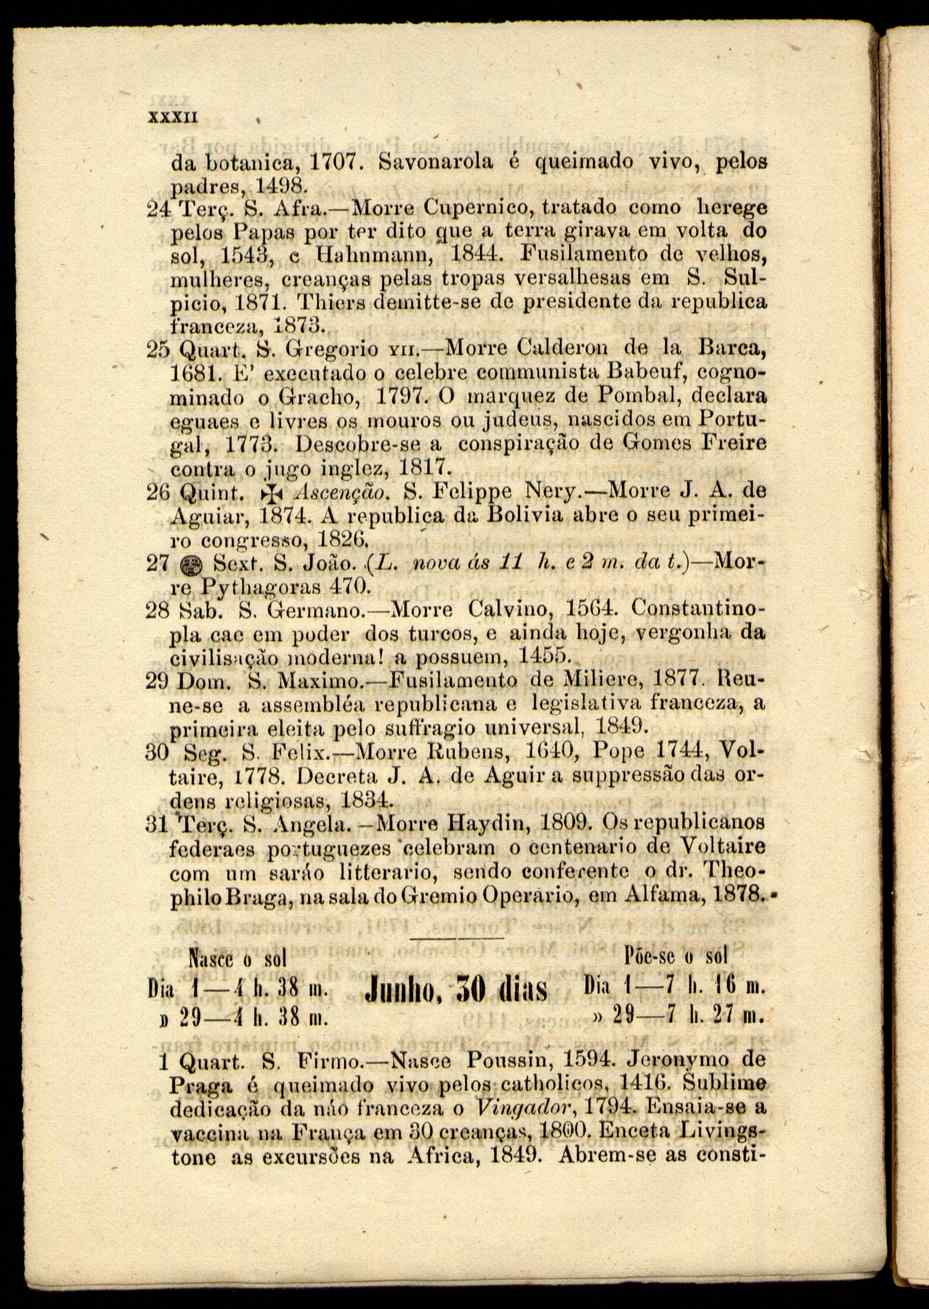 XXXII
da botanica, 1707. Savonarola é queimado vivo, pelos
padres, 1498.
24 Terç. S. Afra.—Morre Cupernico, tratado como herege
pelos Papas por ter dito que a terra girava em volta do
sol, 1543, e Hahnmann, 1844. Fusilamento de velhos,
mulheres, creanças pelas tropas versalhesas em S. Sul-
picio, 1871. Thiers demitte-se de presidente da republica
franceza, 1873.
25 Quart. S. Gregorio VII.—Morre Calderon de la Barca,
1681. E' executado o celebre communista Babeuf, cogno-
minado o Gracho, 1797. O marquez de Pombal, declara
eguaes e livres os mouros ou judeus, nascidos em Portu-
gal, 1773. Descobre-se a conspiração de Gomes Freire
contra o jugo inglez, 1817.
26 Quint. ✠ Ascenção. S. Felippe Nery.—Morre J. A. de
Aguiar, 1874. A republica da Bolivia abre o seu primei-
ro congresso, 1826.
27 Sext. S. João. (L. nova ás 11 h. e 2 m. da t.)—Mor-
re Pythagoras 470.
28 Sab. S. Germano.—Morre Calvino, 1564. Constantino-
pla cae em poder dos turcos, e ainda hoje, vergonha da
civilisação moderna! a possuem, 1455.
29 Dom. S. Maximo.—Fusilamento de Miliere, 1877. Reu-
ne-se a assembléa republicana e legislativa franceza, a
primeira eleita pelo suffragio universal, 1849.
30 Seg. S. Felix.—Morre Rubens, 1640, Pope 1744, Vol-
taire, 1778. Decreta J. A. de Aguir a suppressão das or-
dens religiosas, 1834.
31 Terç. S. Angela.—Morre Haydin, 1809. Os republicanos
federaes portuguezes celebram o centenario de Voltaire
com um saráo litterario, sendo conferente o dr. Theo-
philo Braga, na sala do Gremio Operario, em Alfama, 1878.
Nasce o sol
Dia 1—4 h. 38 m.
» 29—4 h. 38 m.
Junho, 30 dias
Põe-se o sol
Dia 1—7 h. 16 m.
» 29—7 h. 27 m.
1 Quart. S. Firmo.—Nasce Poussin, 1594. Jeronymo de
Praga é queimado vivo pelos catholicos, 1416. Sublime
dedicação da náo franceza o Vingador, 1794. Ensaia-se a
vaccina na França em 30 creanças, 1800. Enceta Livings-
tone as excursões na Africa, 1849. Abrem-se as consti-